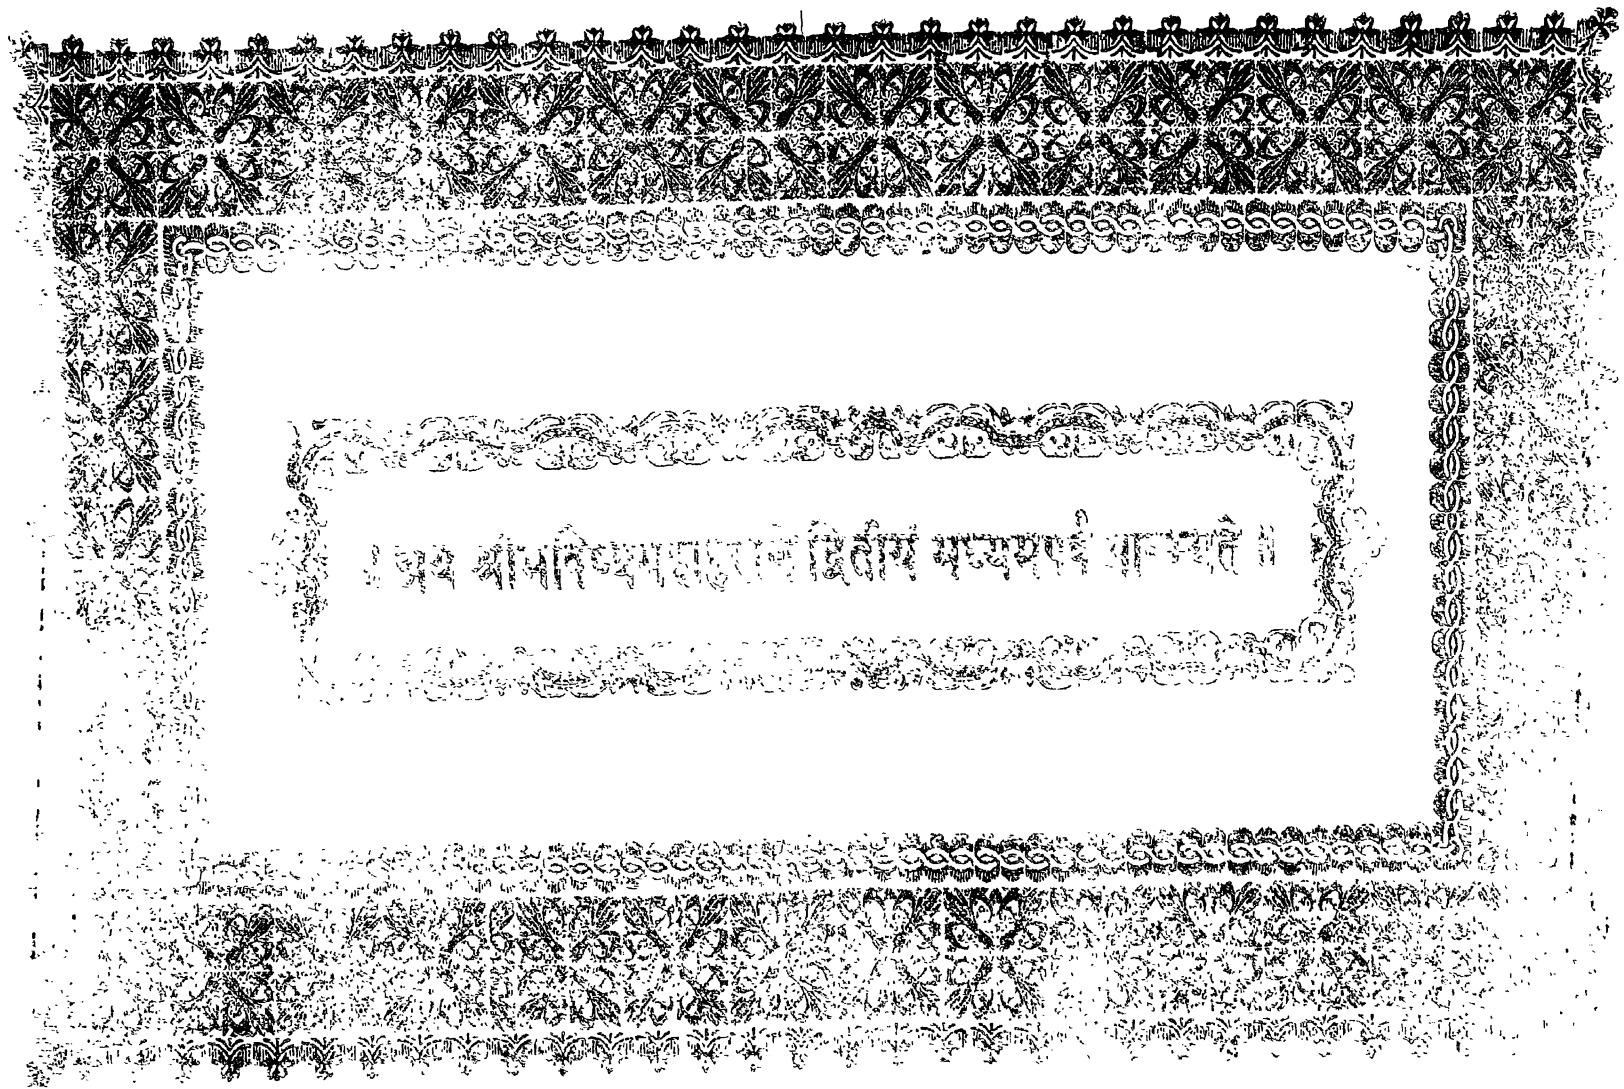 ॥ अथ श्रीभविष्यमहापुराणे द्वितीयं मध्यमपर्व प्रारभ्यते ॥